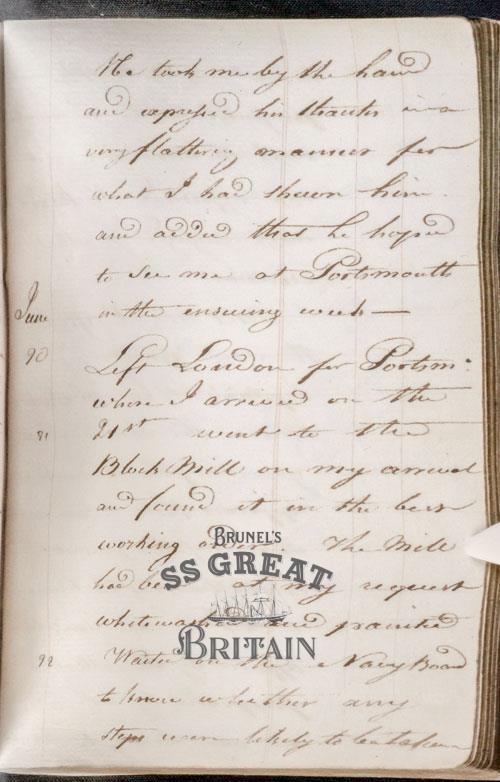 He took me by the hand
and expressed his thanks in a
very flattering manner for
what I had shewn him
and added that he hoped
to see me at Portsmouth
June
in the ensuing week —
20
Left London for Portsm:
where I arrived on the
21 21st went to the
Block Mill on my arrival
and found it in the best
working order. The Mill
had been at my request
whitewashed and painted
22 Waited on the Navy Board
to know whether any
steps were likely to be taken
BRUNEL'S
SS GREAT
BRITAIN